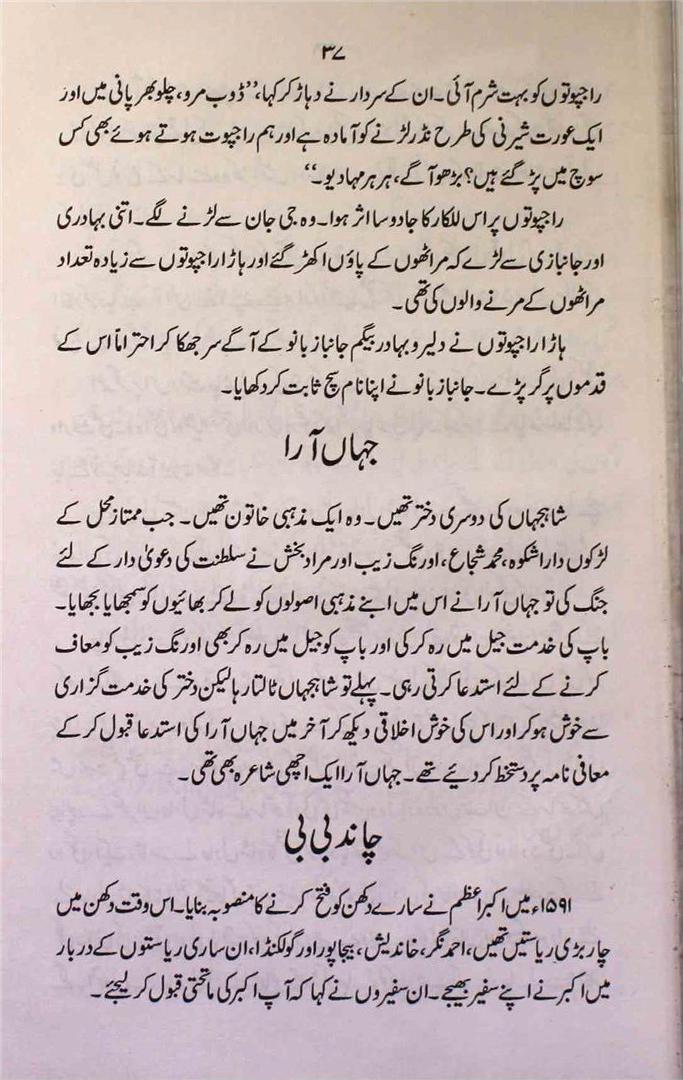 ۳۷
راجپوتوں کو بہت شرم آئی۔ ان کے سردار نے دہاڑ کر کہا، ”ڈوب مرو، چلو بھر پانی میں اور
ایک عورت شیرنی کی طرح نڈر لڑنے کو آمادہ ہے اور ہم راجپوت ہوتے ہوئے بھی کس
سوچ میں پڑ گئے ہیں؟ بڑھو آگے، ہر ہر مہادیو۔“
راجپوتوں پر اس للکار کا جادو سا اثر ہوا۔ وہ جی جان سے لڑنے لگے۔ اتنی بہادری
اور جانبازی سے لڑے کہ مراٹھوں کے پاؤں اکھڑ گئے اور ہاڑا راجپوتوں سے زیادہ تعداد
مراٹھوں کے مرنے والوں کی تھی۔
ہاڑا راجپوتوں نے دلیر و بہادر بیگم جانباز بانو کے آگے سر جھکا کر احتراماً اس کے
قدموں پر گر پڑے۔ جانباز بانو نے اپنا نام سچ ثابت کر دکھایا۔
جہاں آرا
شاہجہاں کی دوسری دختر تھیں۔ وہ ایک مذہبی خاتون تھیں۔ جب ممتاز محل کے
لڑکوں دارا شکوہ، محمد شجاع، اورنگ زیب اور مراد بخش نے سلطنت کی دعویٰ دار کے لئے
جنگ کی تو جہاں آرا نے اس میں اپنے مذہبی اصولوں کو لے کر بھائیوں کو سمجھایا بجھایا۔
باپ کی خدمت جیل میں رہ کر کی اور باپ کو جیل میں رہ کر بھی اورنگ زیب کو معاف
کرنے کے لئے استدعا کرتی رہی۔ پہلے تو شاہجہاں ٹالتا رہا لیکن دختر کی خدمت گزاری
سے خوش ہو کر اور اس کی خوش اخلاقی دیکھ کر آخر میں جہاں آرا کی استدعا قبول کر کے
معافی نامہ پر دستخط کر دیئے تھے۔ جہاں آرا ایک اچھی شاعرہ بھی تھی۔
چاند بی بی
۱۵۹۱ء میں اکبر اعظم نے سارے دکھن کو فتح کرنے کا منصوبہ بنایا۔ اس وقت دکھن میں
چار بڑی ریاستیں تھیں، احمد نگر، خاندیش، بیجاپور اور گولکنڈا، ان ساری ریاستوں کے دربار
میں اکبر نے اپنے سفیر بھیجے۔ ان سفیروں نے کہا کہ آپ اکبر کی ماتحتی قبول کر لیجئے۔